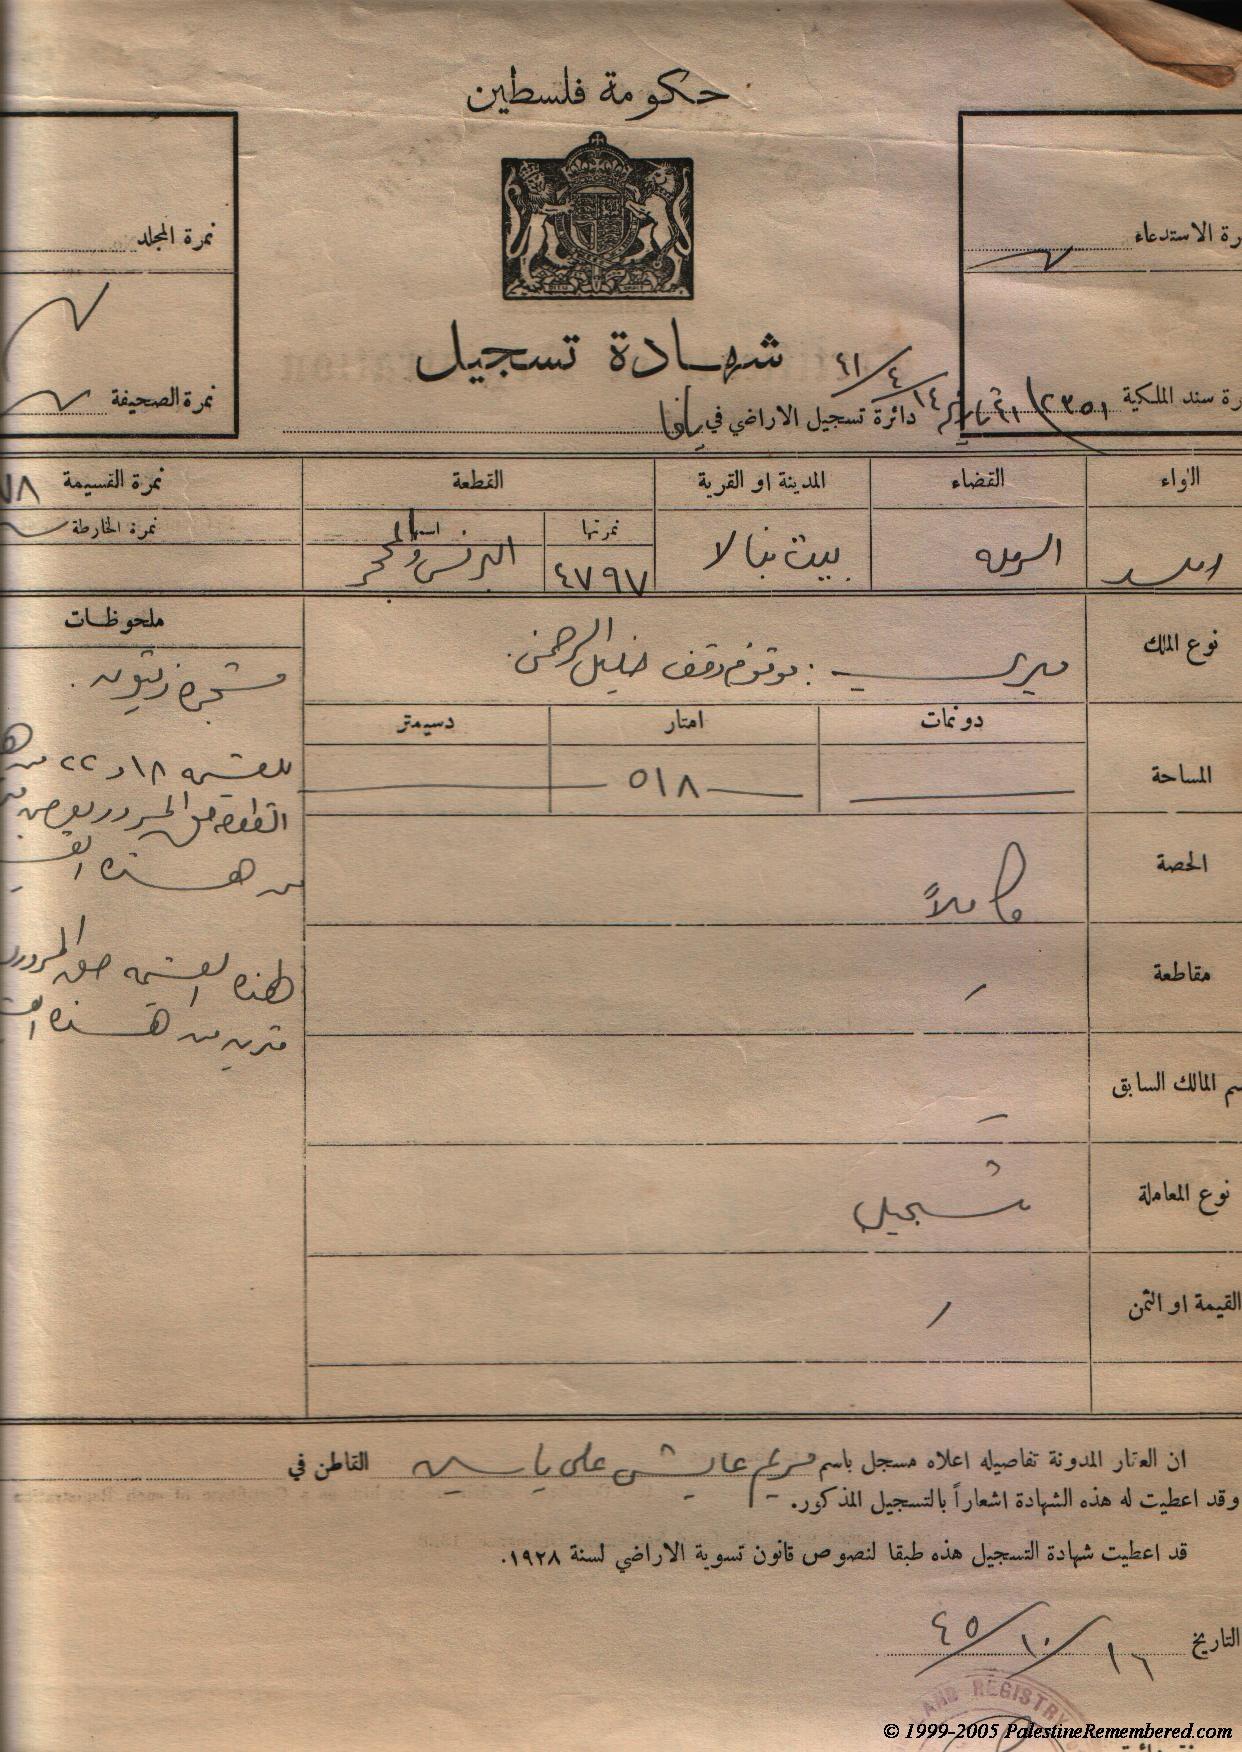 حكومة فلسطين
رة الاستدعاء
نمرة المجلد
شهادة تسجيل
٤١/٤/١٤
رة سند الملكية ٢٣٥١/٤١
نمرة الصحيفة
دائرة تسجيل الاراضي في يافا
الواء القضاء المدينة او القرية القطعة نمرة القسيمة ٧٨
نمرتها اسمها نمرة الخارطة
الرمله بيت نبالا ٤٧٩٧ البرنس والمحجر
نوع الملك ميري : موقوفه وقف خليل الرحمن. ملحوظات
مشجره زيتون.
دونمات امتار دسيمتر
المساحة ٥١٨
للقسيمه ١٨ و ٢٢ من
القطعه حق المرور بعرض
من هذه
الحصة كاملاً
لهذه القسيمه حق المرور
مترين من هذه
مقاطعة
سم المالك السابق
نوع المعاملة تسجيل
القيمة او الثمن
ان العقار المدونة تفاصيله اعلاه مسجل باسم مريم عايش علي ياسين القاطن في
وقد اعطيت له هذه الشهادة اشعاراً بالتسجيل المذكور.
قد اعطيت شهادة التسجيل هذه طبقا لنصوص قانون تسوية الاراضي لسنة ١٩٢٨.
التاريخ ١٦/١٠/٤٥
LAND REGISTRY
© 1999-2005 PalestineRemembered.com